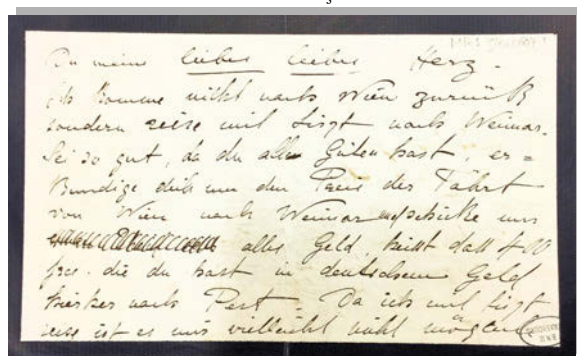 Du mein liebes liebes Herz.
Ich komme nicht nach Wien zurück
sondern reise mit Liszt nach Weimar.
Sei so gut, da du alle Güten hast, er=
kundige dich um den Preis der Fahrt
von Wien nach Weimar schicke mir
alles Geld 400
frcs. die du hast in deutschem Geld
hierher nach Pest. Da ich mit Liszt
reise ist es mir vielleicht nicht möglich